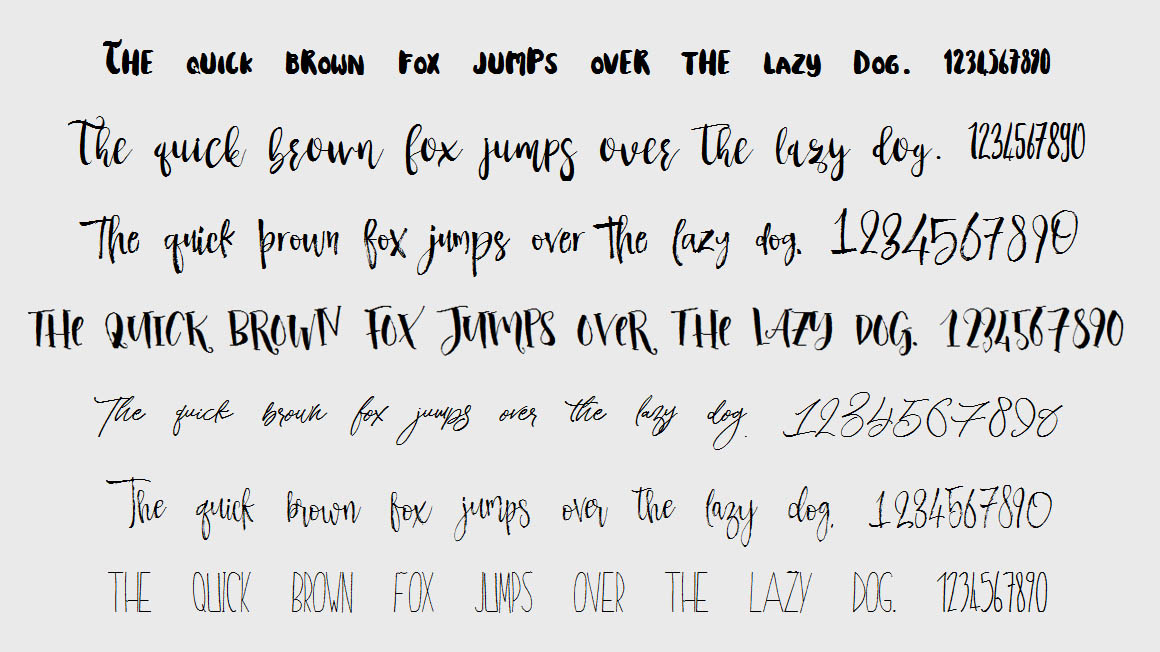 THE QUICK BROWN FOX JUMPS OVER THE LAZY DOG. 1234567890
The quick brown fox jumps over the lazy dog. 1234567890
The quick brown fox jumps over the lazy dog. 1234567890
THE QUICK BROWN FOX JUMPS OVER THE LAZY DOG. 1234567890
The quick brown fox jumps over the lazy dog. 1234567890
The quick brown fox jumps over the lazy dog. 1234567890
THE QUICK BROWN FOX JUMPS OVER THE LAZY DOG. 1234567890